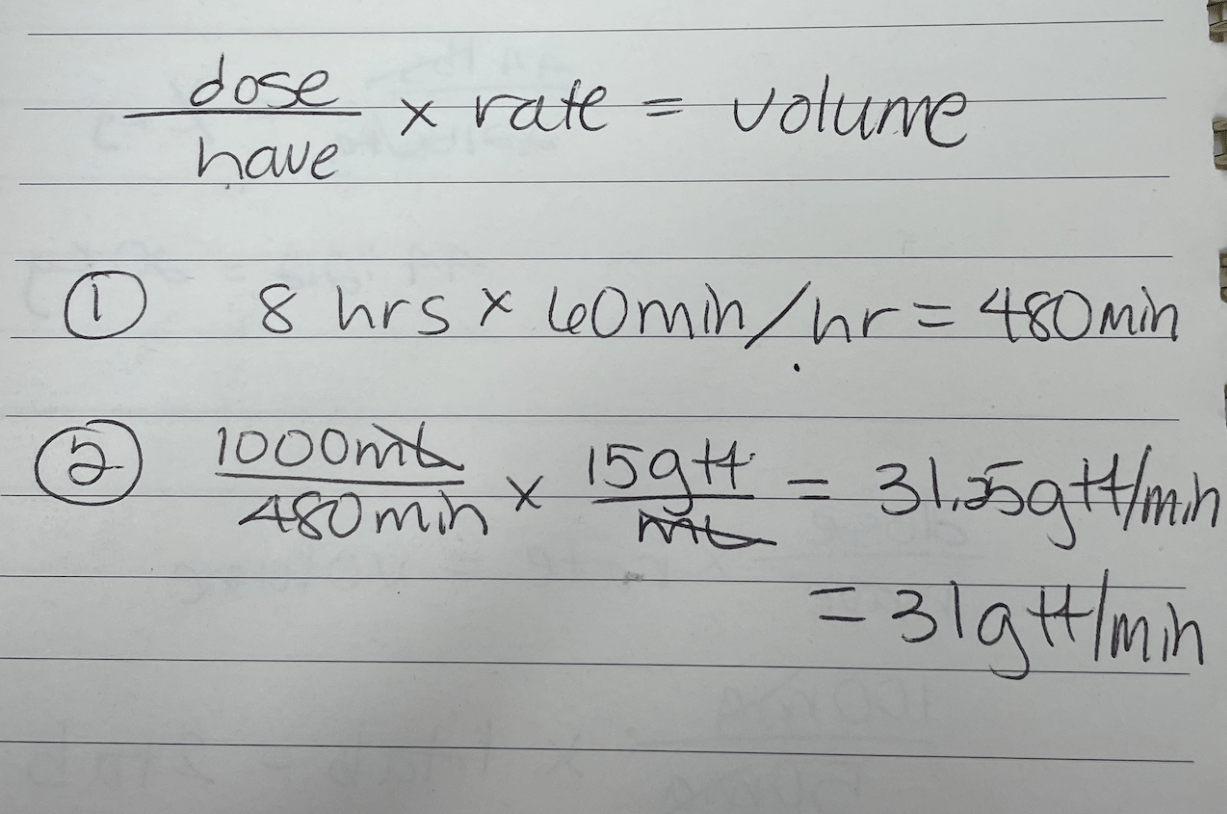 dose
have × rate = volume
① 8 hrs × 60min/hr = 480min
② 1000mL
480min × 15gtt
mL = 31.25gtt/min
= 31gtt/min